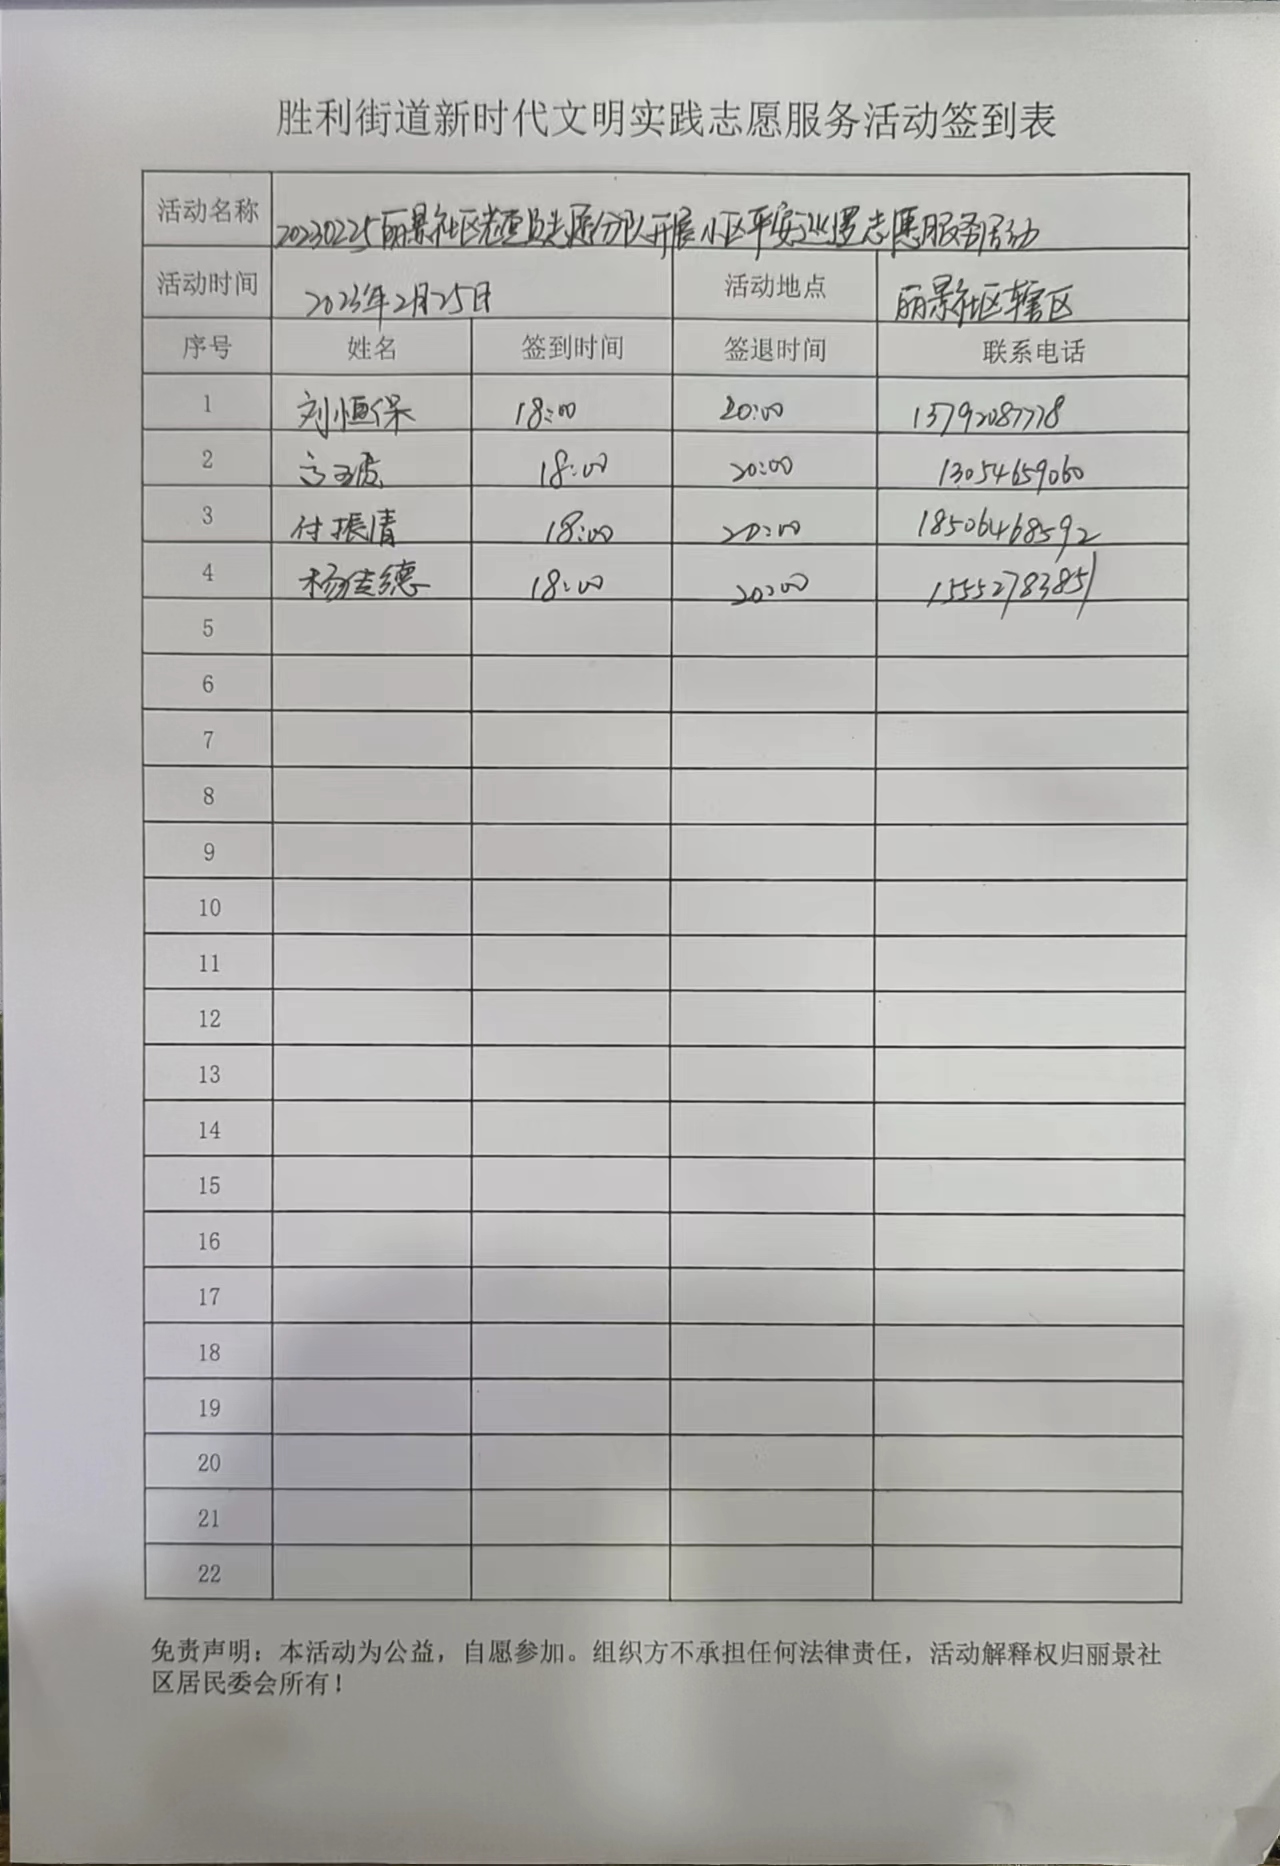 胜利街道新时代文明实践志愿服务活动签到表
活动名称 20230225丽景社区党员志愿分队开展小区平安巡逻志愿服务活动
活动时间 2023年2月25日 活动地点 丽景社区辖区
序号 姓名 签到时间 签退时间 联系电话
1 刘恒保 18:00 20:00 13792087778
2 18:00 20:00 13054659060
3 付振清 18:00 20:00 18506468592
4 杨德 18:00 20:00 15552783851
5
6
7
8
9
10
11
12
13
14
15
16
17
18
19
20
21
22
免责声明：本活动为公益，自愿参加。组织方不承担任何法律责任，活动解释权归丽景社
区居民委会所有！